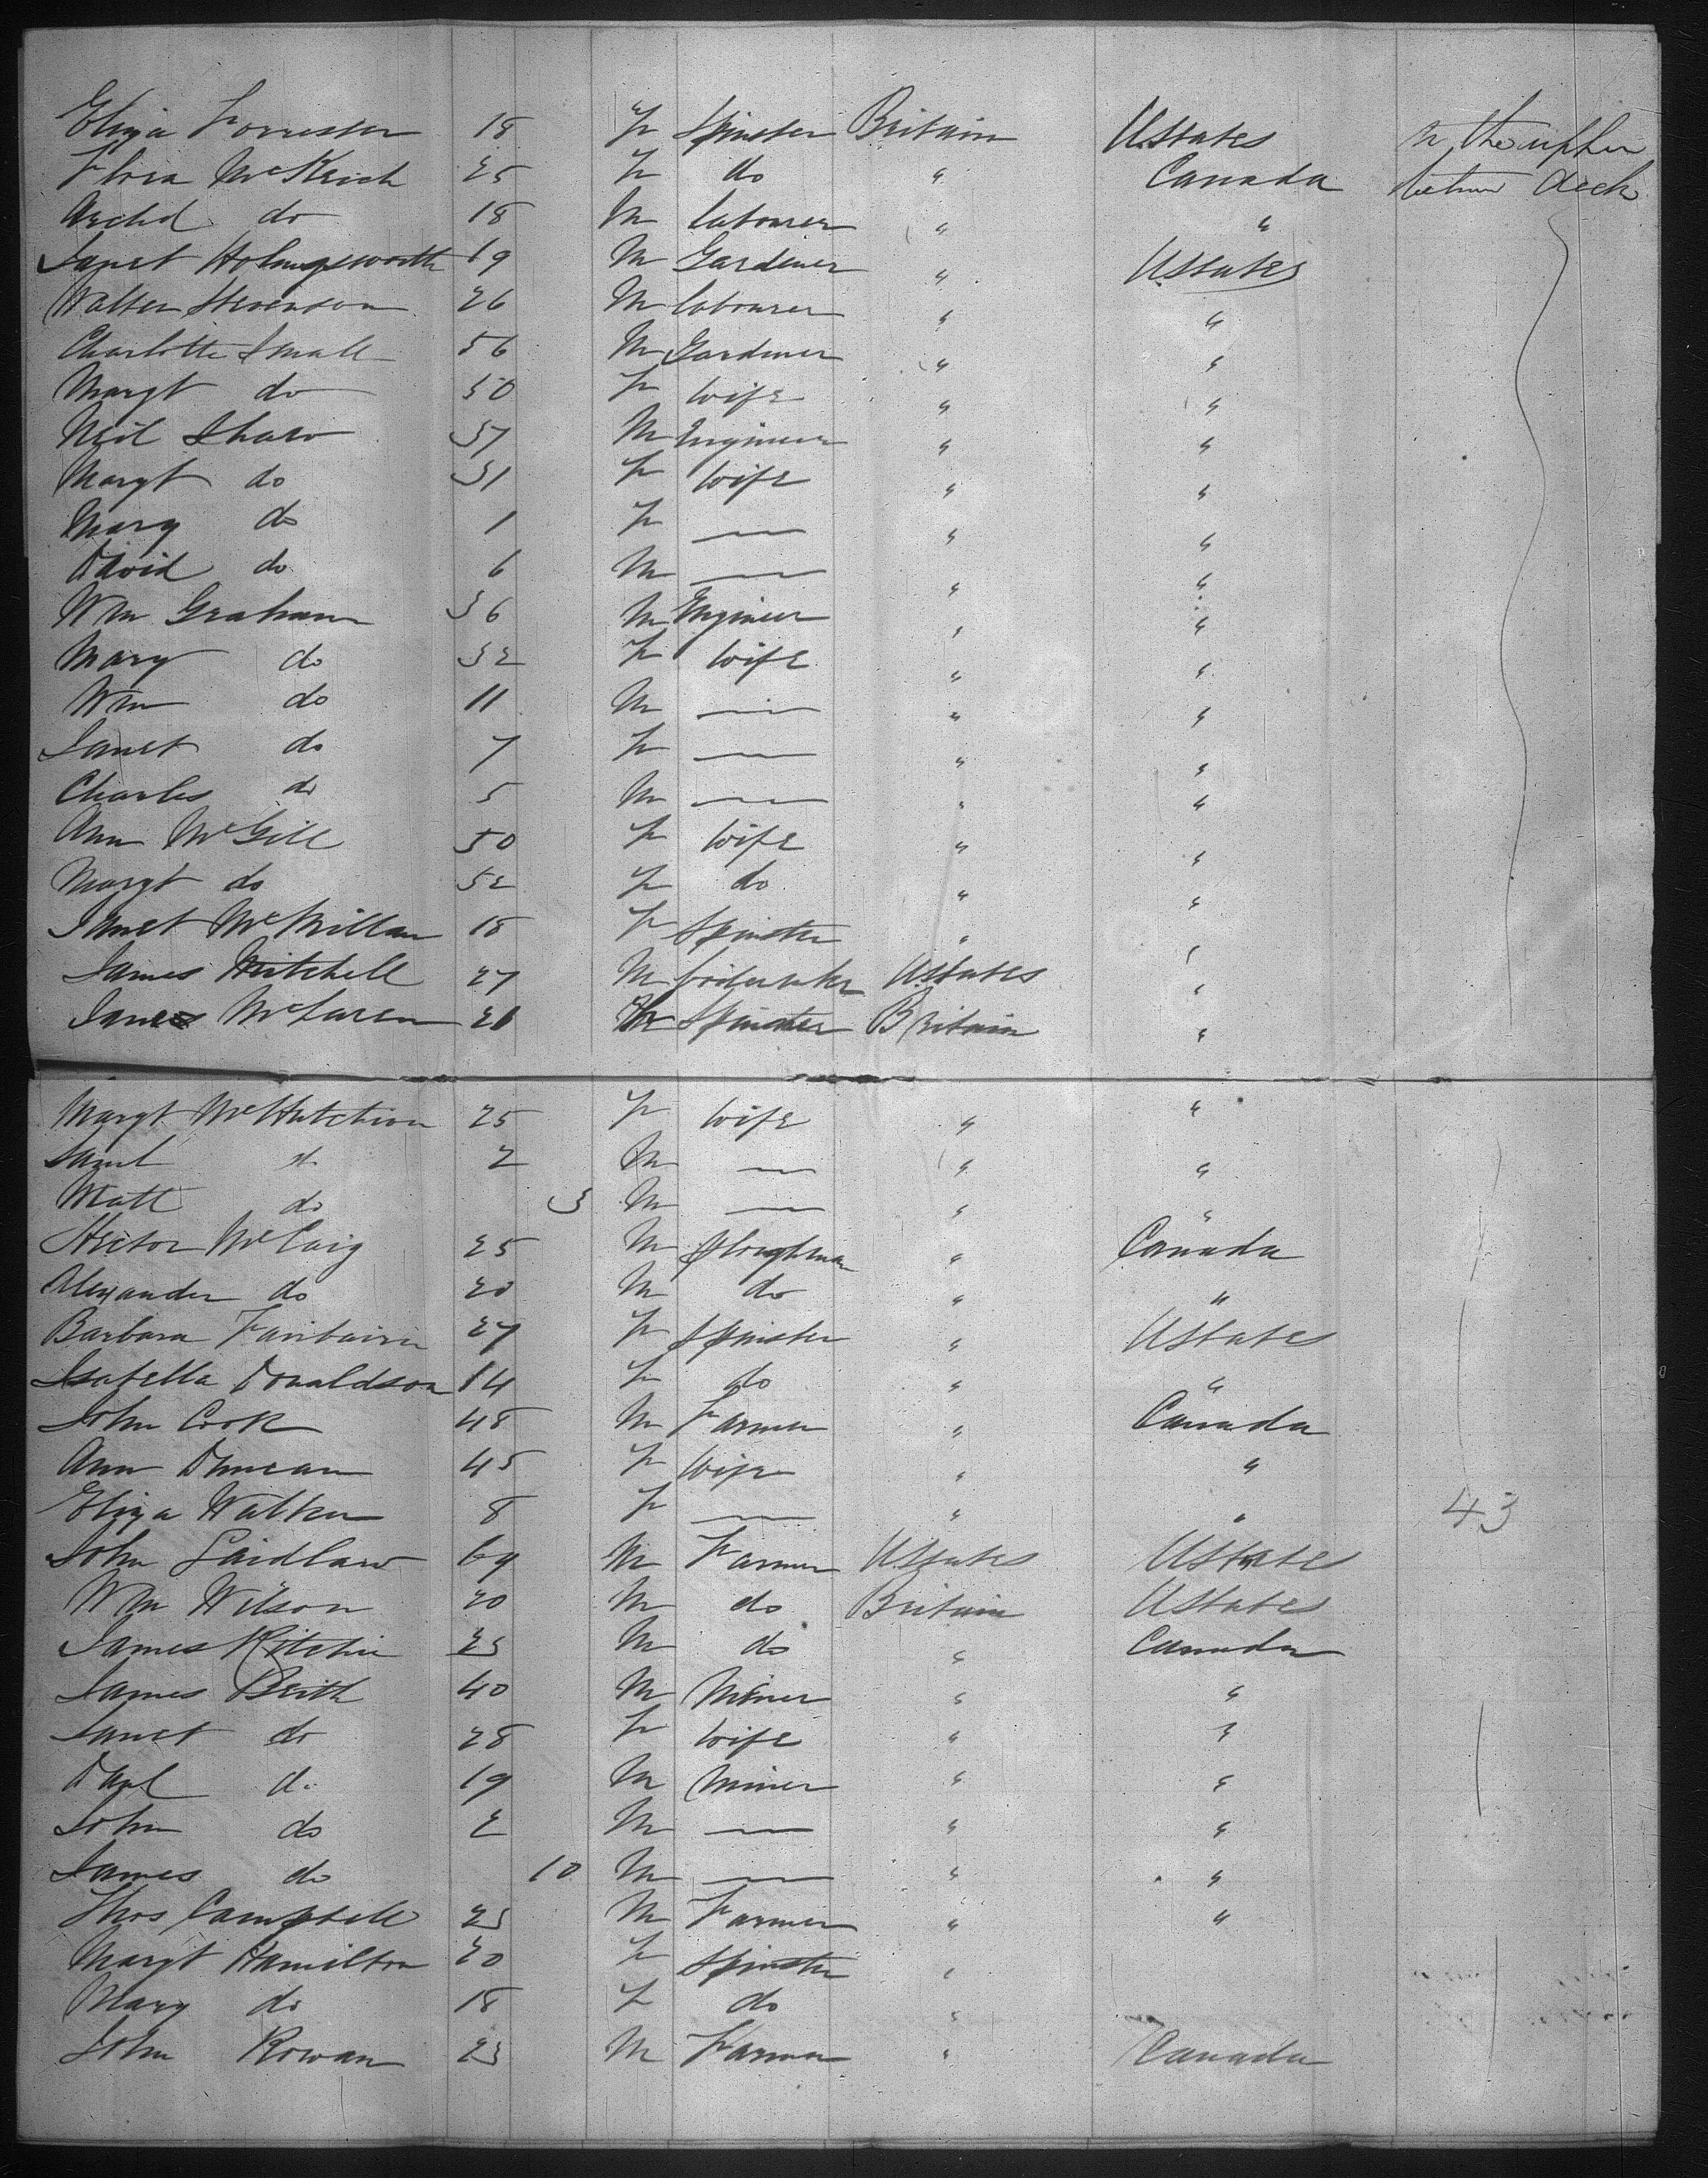 Eliza Forrester 18 F Spinster Britain UStates in the upper
Flora McKeich 25 F do " Canada between deck
Archd do 18 M labourer " "
Janet Holingsworth 19 M Gardener " UStates
Walter Stevenson 26 M labourer " "
Charlotte Small 56 M Gardener " "
Margt do 50 F wife " "
Neil Shaw 37 M Engineer " "
Margt do 31 F wife " "
Mary do 1 F — " "
David do 6 M — " "
Wm Graham 36 M Engineer " "
Mary do 32 F wife " "
Wm do 11 M — " "
Janet do 7 F — " "
Charles do 5 M — " "
Ann McGill 50 F wife " "
Margt do 52 F do " "
Janet McMillan 18 F Spinster " "
James Mitchell 27 M UStates "
Janes McLaren 21 Spinster Britain "
Margt McHutchion 25 F wife " "
Saml do 2 M — " "
Matt do 3 M — " "
Hector McCaig 25 M ploughman " Canada
Alexander do 20 M do " "
Barbara Fairbairn 27 F Spinster " UStates
Isabella Donaldson 14 F do " "
John Cook 48 M Farmer " Canada
Ann Duncan 45 F wife " "
Eliza Walker 8 F — " " 43
John Laidlaw 69 M Farmer UStates UStates
Wm Wilson 20 M do Britain UStates
James Ritchie 25 M do " Canada
James Beith 40 M Miner " "
Janet do 28 F wife " "
Danl do 19 M miner " "
John do 2 M — " "
James do 10 M — " "
Thos Campbell 23 M Farmer " "
Margt Hamilton 20 F Spinster "
Mary do 18 F do "
John Rowan 23 M Farmer " Canada